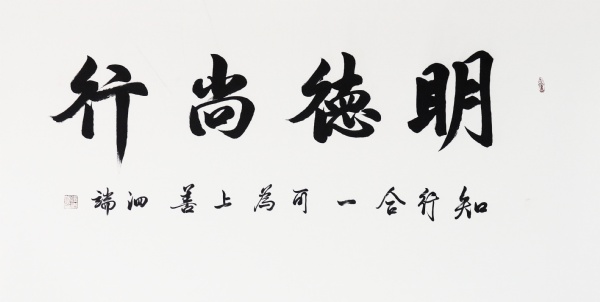 明德尚行
知行合一可為上善泗端